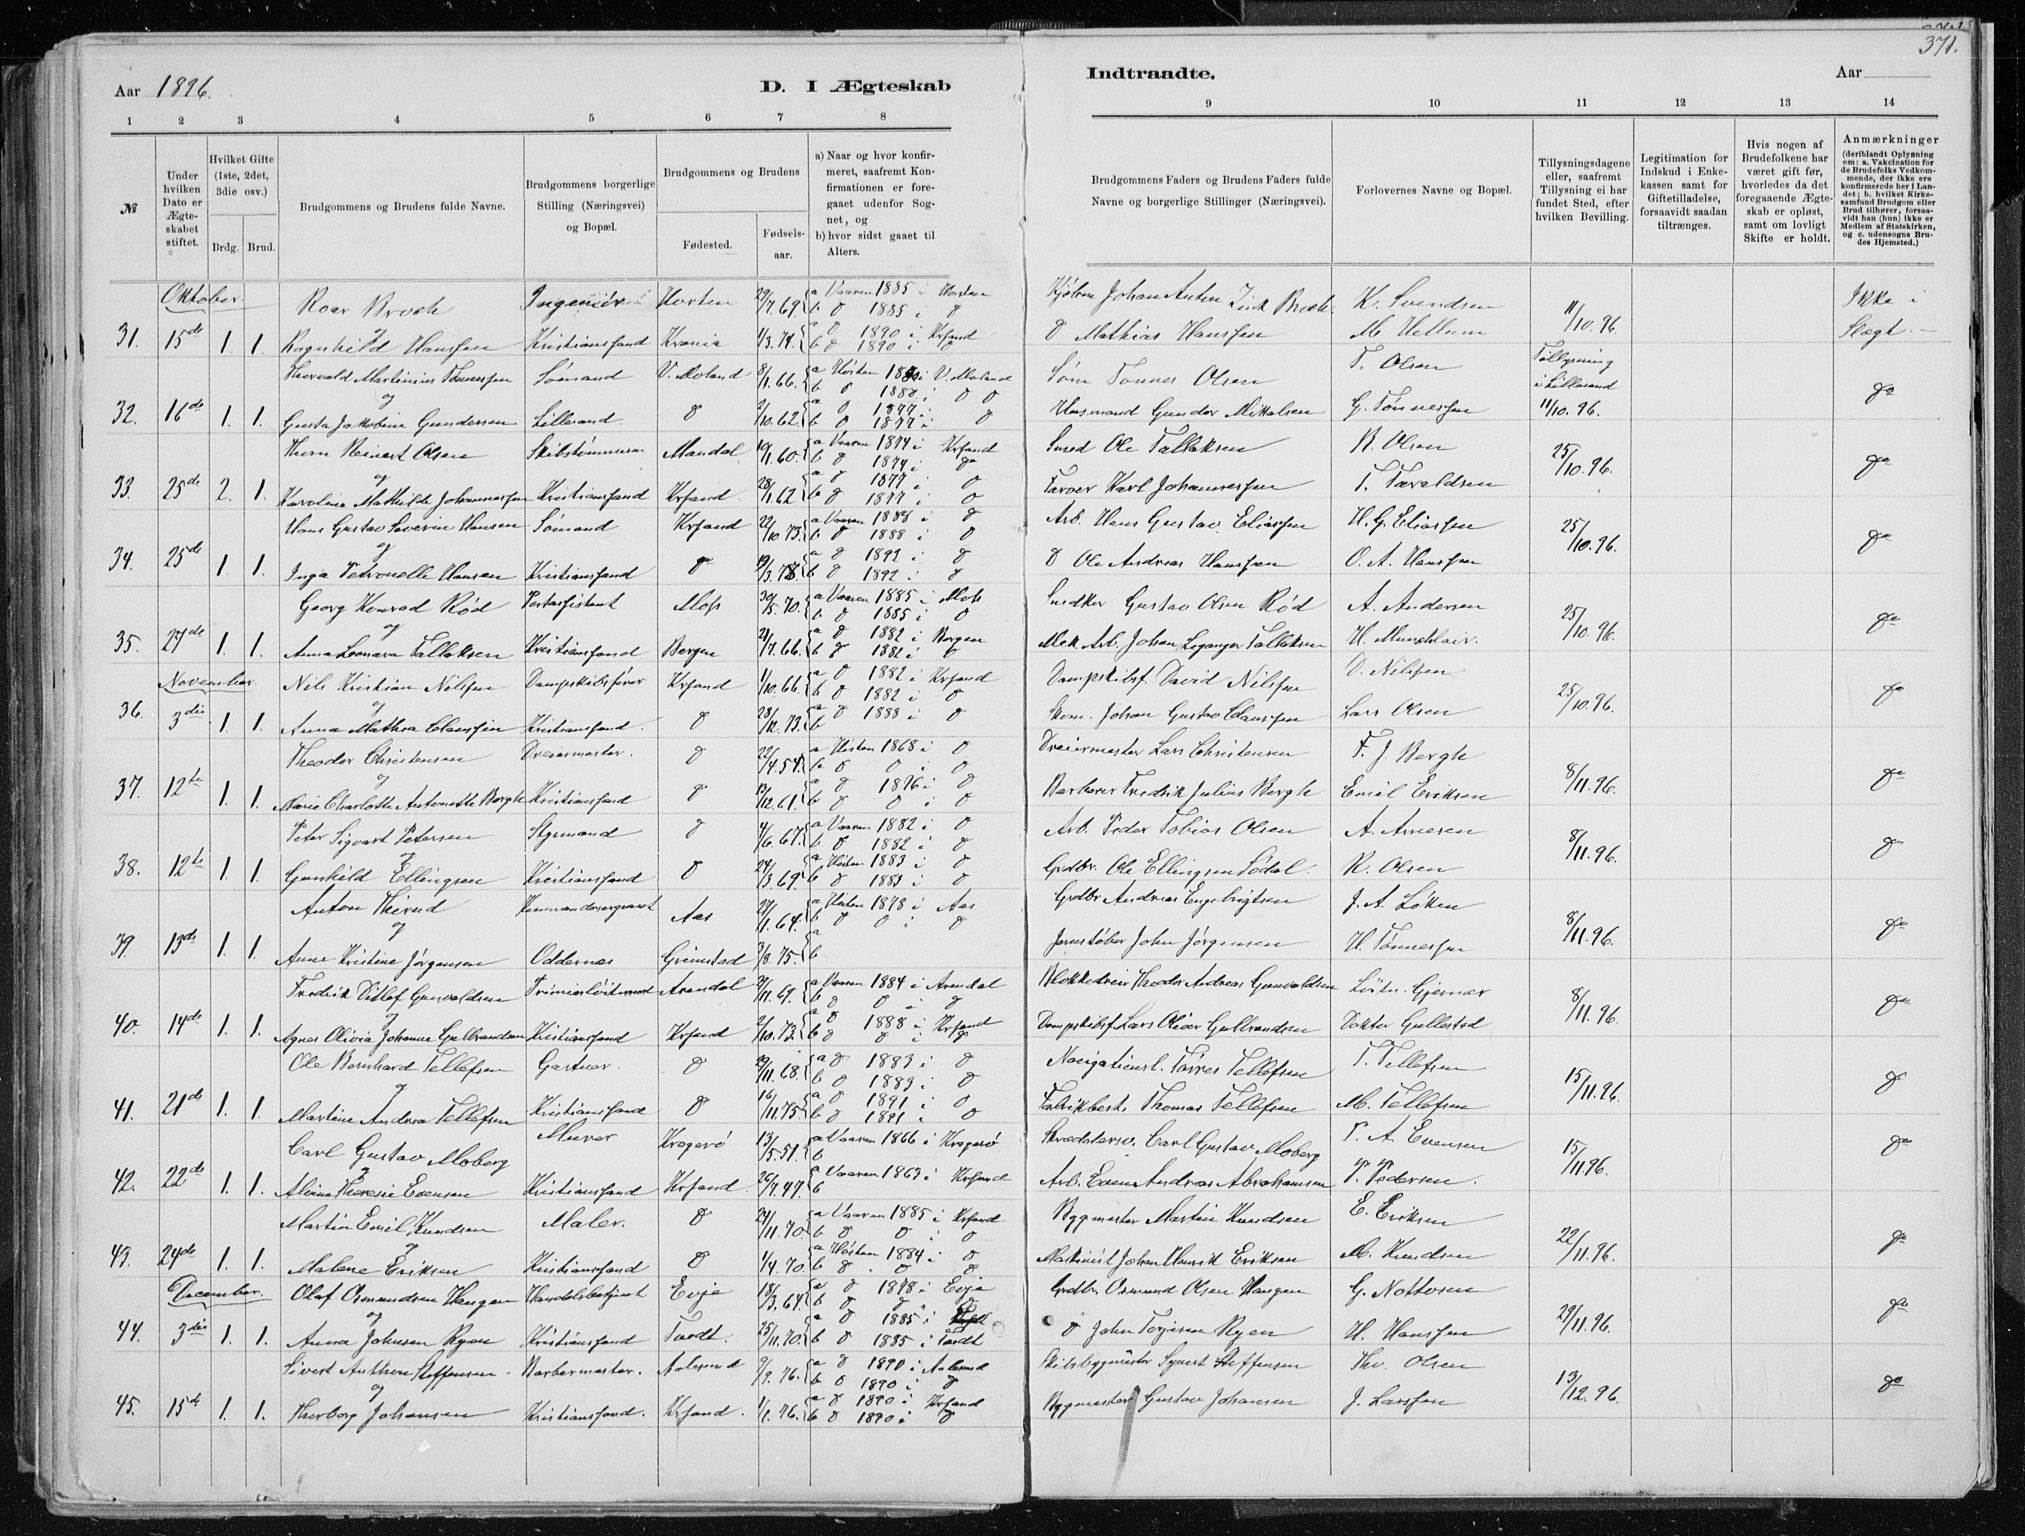 371.
Aar 1896.
D. I Ægteskab
Indtraadte.
Aar
1 2 3 4 5 6 7 8 9 10 11 12 13 14
№
Under hvilken Dato er Ægteskabet stiftet.
Hvilket Gifte (1ste, 2det, 3die osv.)
Brdg. Brud.
Brudgommens og Brudens fulde Navne.
Brudgommens borgerlige Stilling (Næringsvei) og Bopæl.
Brudgommens og Brudens
Fødested.
Fødselsaar.
a) Naar og hvor konfirmeret, saafremt Konfirmationen er foregaaet udenfor Sognet, og
b) hvor sidst gaaet til Alters.
Brudgommens Faders og Brudens Faders fulde Navne og borgerlige Stillinger (Næringsvei).
Forlovernes Navne og Bopæl.
Tillysningsdagene eller, saafremt Tillysning ei har fundet Sted, efter hvilken Bevilling.
Legitimation for Indskud i Enkekassen samt for Giftetilladelse, forsaavidt saadan tiltrænges.
Hvis nogen af Brudefolkene har været gift før, hvorledes da det foregaaende Ægteskab er opløst, samt om lovligt Skifte er holdt.
Anmærkninger
(deriblandt Oplysning om: a. Vakcination for de Brudefolks Vedkommende, der ikke ere konfirmerede her i Landet; b. hvilket Kirkesamfund Brudgom eller Brud tilhører, forsaavidt han (hun) ikke er Medlem af Statskirken, og c. udensogns Brudes Hjemsted.)
Oktober. Roar Broch Ingeniør Horten 29/7.69. a Vaaren 1885 i Horten b 1885 i Johan Anton Broch K. Svendsen 11/10.96. Ikke i
31. 15de 1. 1. Ragnhild Hanssen Kristianssand Krania 1/3.74. a 1890 i Krsand b 1890 i Mathias Hanssen M. Hellum Slegt.
Thorvald Martinius Tønnessen Sømand V. Moland 8/1.66. a Høsten b 1888 i Søm Tønnes Olsen T. Olsen Tillysning i Lillesand
32. 16de 1. 1. Gusta Jakobine Gundersen Lillesand 10.62. a 1877 i b 1877 i Husmand Gunder Mikalsen G. Tønnessen 11/10.96.
Thorn Reinert Olsen Skibstømmerm Mandal 1.60. a Vaaren 1874 i Krsand b 1874 i Smed Ole Tallaksen R. Olsen 25/10.96.
33. 25de 2. 1. Karoline Mathilde Johannessen Kristianssand Krsand. 28/1.62 a 1877 i b 1877 i Farver Karl Johannessen T. Taraldsen
Hans Gustav Severin Hansen Sømand Krsand 22/10.73. a Vaaren 1888 i b 1888 i Arb. Hans Gustav Eliassen H. G. Eliassen 25/10.96.
34. 25de 1. 1. Inga Petronelle Hansen Kristianssand 19/3.78. a 1892 i b 1892 i Ole Andreas Hanssen O. A. Hanssen
Georg Konrad Rød Postassistent Moss 30/5.70. a Vaaren 1885 i Moss b 1885 i Snedker Gustav Olsen Rød A. Andersen 25/10.96.
35. 27de 1. 1. Anna Leonara Tallaksen Kristianssand Bergen 21/7.66. a 1882 i Bergen b 1882 i Mek. Arb. Johan Tallaksen H. Munchlair.
November. Nils Kristian Nilsen Dampskibsfører Krsand 1/10.66. a 1882 i Krsand b 1882 i Dampskibsf. David Nilssen D. Nilsen 25/10.96.
36. 3die 1. 1. Anna Mathea Claussen Kristianssand. 28/12.73. a 1888 i b Skom. Johan Gustav Claussen Lars Olsen
Theodor Christensen Dreiermester. 22/4.54. a Høsten 1868 i b Dreiermester Lars Christensen F. J. Bergh 8/11.96.
37. 12te 1. 1. Marie Charlotte Antonette Bergh Kristianssand 13/12.61. a 1876 i b Barberer Fredrik Julius Bergh Emil Eriksen
Peter Sigvart Petersen Styrmand 4/6.67. a Vaaren 1882 i b 1882 i Arb. Peder Tobias Olsen A. Arnesen 8/11.96.
38. 12te 1. 1. Gunhild Ellingsen Kristianssand 24/3.69. a Høsten 1883 i b 1883 i Grdbr. Ole Ellingsen Sødal. R. Olsen
Anton Thorud Aas 27/1.64. a Høsten 1878 i Aas b Grdbr Andreas Engebrigtsen J. A. Løken 8/11.96.
39. 13de 1. 1. Anne Kristine Jørgensen Oddernes Grimstad 3/8.75. a b Jernstøber John Jørgensen H. Tønnessen
Fredrik Ditlef Gunvaldsen Premierløitnant Arendal 21/11.69. a Vaaren 1884 i Arendal b Blokkedreier Theodor Andreas Gunvaldsen Løitn. Gjernær 8/11.96.
40. 14de 1. 1. Agnes Olivia Johanne Gulbrandsen Kristianssand Krsand 2/10.73. a 1888 i Krsand b Dampskibsf. Lars Oliver Gulbrandsen Doktor Gullestad
Ole Bernhard Tellefsen Gartner. 11.68. a 1883 i b 1883 i Navigationsl. Tørres Tellefsen T. Tellefsen 15/11.96.
41. 21de 1. 1. Martine Andrea Tellefsen Kristianssand 16/11.75. a 1891 i b 1891 i Fabrikbest. Thomas Tellefsen M. Tellefsen
Carl Gustav Moberg Murer Kragerø 13/5.51. a Vaaren 1866 i Kragerø b Skræddersv. Carl Gustav Moberg P. A. Evensen 15/11.96.
42. 22de 1. 1. Alvine Theresie Evensen Kristianssand Krsand. 26/7.47. a Vaaren 1863 i Krsand b Arb. Even Andreas Abrahamsen P. Pedersen.
Martin Emil Knudsen Maler. 29/11.70. a Vaaren 1885 i Krsand b Bygmester Martin Knudsen E. Eriksen 22/11.96.
43. 24de 1. 1. Malene Eriksen Kristianssand 1/4.70. a Høsten 1884 i b Maskinist Johan Henrik Eriksen M. Knudsen
December. Olaf Osmundsen Haugen Handelsbetjent Evje 18/3.64. a 1878 i Evje b Grdbr. Osmund Olsen Haugen G. Nottosen 29/11.96.
44. 3die 1. 1. Anna Johnsen Ryen Kristianssand Tvedt. 25/11.70. a 1885 i b 1885 i Tvedt John Terjesen Ryen H. Hanssen
Sivert Anthon Steffensen Barbermester. Aalesund 9/9.76. a 1890 i Aalesund b 1890 i Skibsbygmester Synert Steffensen Thv. Olsen 13/12.96.
45. 15de 1. 1. Thorborg Johansen Kristianssand. Krsand. 1/1.76. a 1890 i Krsand b 1890 i Bygmester Gustav Johansen J. Larssen